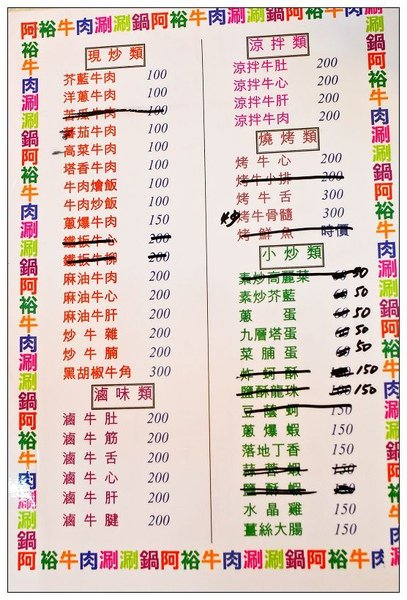 阿裕牛肉涮涮鍋阿裕牛肉涮涮鍋
現炒類
芥藍牛肉 100
洋蔥牛肉 100
苦瓜牛肉 100
蕃茄牛肉 100
高菜牛肉 100
塔香牛肉 100
牛肉燴飯 100
牛肉炒飯 100
蔥爆牛肉 150
鐵板牛心 200
鐵板牛柳 200
麻油牛肉 200
麻油牛心 200
麻油牛肝 200
炒牛雜 200
炒牛腩 200
黑胡椒牛角 300
滷味類
滷牛肚 200
滷牛筋 200
滷牛舌 200
滷牛心 200
滷牛肝 200
滷牛腱 200
涼拌類
涼拌牛肚 200
涼拌牛心 200
涼拌牛肝 200
涼拌牛肉 200
燒烤類
烤牛心 200
烤牛小排 200
烤牛舌 300
炒 烤牛骨髓 300
烤鮮魚 時價
小炒類
素炒高麗菜 50
素炒芥藍 50
蔥蛋 50
九層塔蛋 50
菜脯蛋 50
炸蚵酥 150
鹽酥龍珠 150
豆蔭蚵 150
蔥爆蝦 150
落地丁香 150
蒜蓉蝦 150
鹽酥蝦 150
水晶雞 150
薑絲大腸 150
阿裕牛肉涮涮鍋阿裕牛肉涮涮鍋